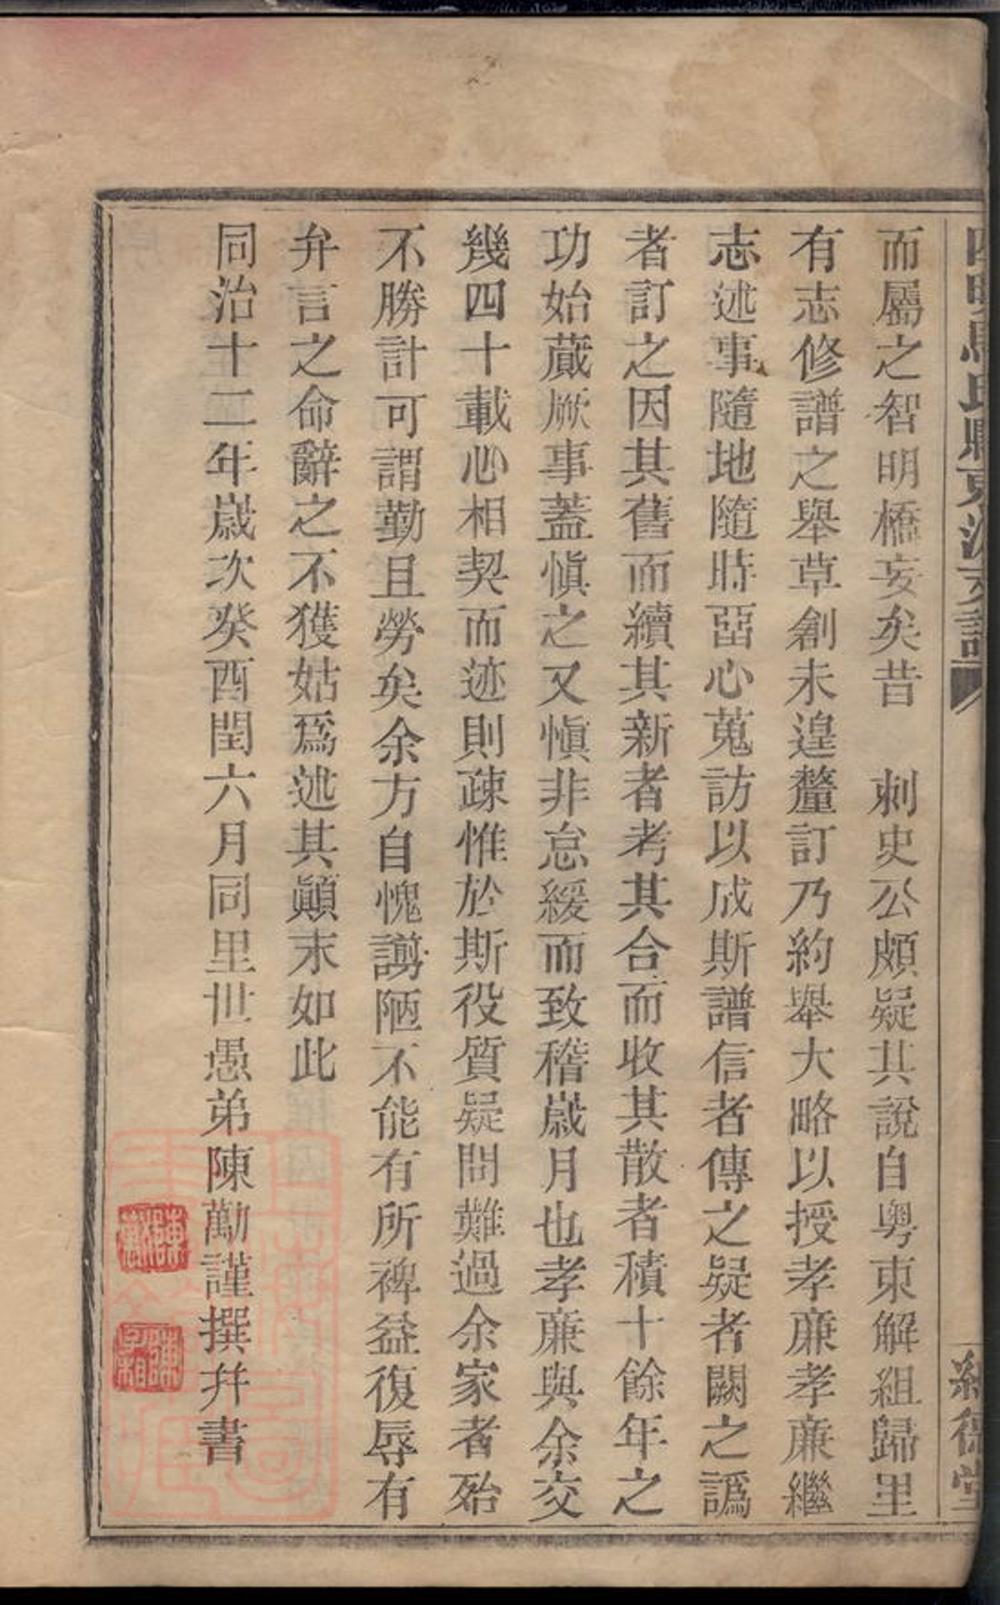 而屬之智明橋妄矣昔　刺史公頗疑其說自粵東解組歸里
有志修譜之舉草創未遑釐訂乃約舉大略以授孝廉孝廉繼
志述事隨地隨時留心蒐訪以成斯譜信者傳之疑者闕之譌
者訂之因其舊而續其新者考其合而收其散者積十餘年之
功始蕆厥事蓋慎之又慎非怠緩而致稽歲月也孝廉與余交
幾四十載心相契而迹則疎惟於斯役質疑問難過余家者殆
不勝計可謂勤且勞矣余方自愧謭陋不能有所裨益復辱有
弁言之命辭之不獲姑爲述其顛末如此
同治十二年歲次癸酉閏六月同里世愚弟陳勱謹撰幷書
陳勱